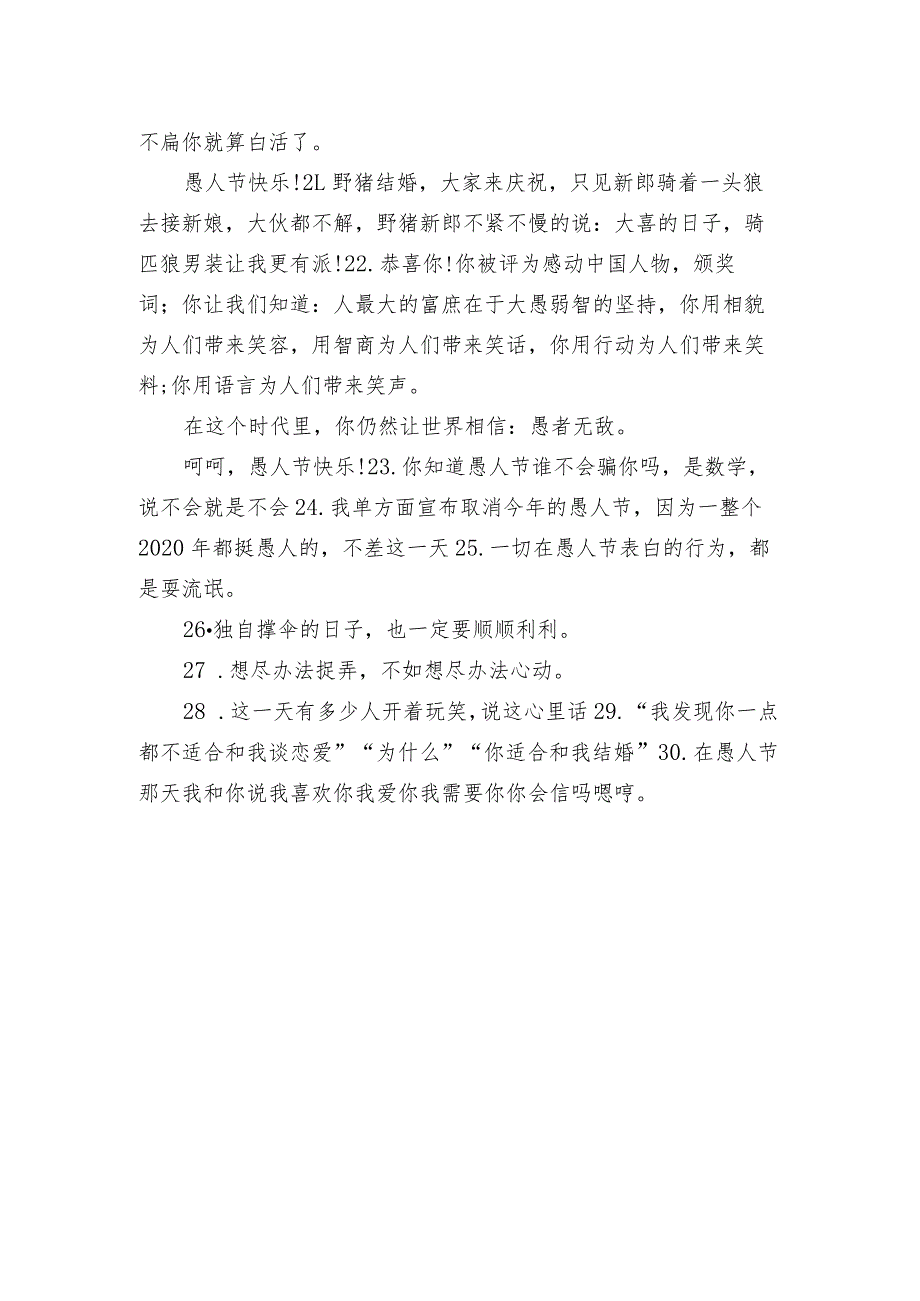 不扁你就算白活了。
愚人节快乐!2L野猪结婚，大家来庆祝，只见新郎骑着一头狼
去接新娘，大伙都不解，野猪新郎不紧不慢的说：大喜的日子，骑
匹狼男装让我更有派!22.恭喜你!你被评为感动中国人物，颁奖
词；你让我们知道：人最大的富庶在于大愚弱智的坚持，你用相貌
为人们带来笑容，用智商为人们带来笑话，你用行动为人们带来笑
料;你用语言为人们带来笑声。
在这个时代里，你仍然让世界相信：愚者无敌。
呵呵，愚人节快乐!23.你知道愚人节谁不会骗你吗，是数学，
说不会就是不会24.我单方面宣布取消今年的愚人节，因为一整个
2020年都挺愚人的，不差这一天25.一切在愚人节表白的行为，都
是耍流氓。
26•独自撑伞的日子，也一定要顺顺利利。
27 .想尽办法捉弄，不如想尽办法心动。
28 .这一天有多少人开着玩笑，说这心里话29.“我发现你一点
都不适合和我谈恋爱”“为什么”“你适合和我结婚”30.在愚人节
那天我和你说我喜欢你我爱你我需要你你会信吗嗯哼。